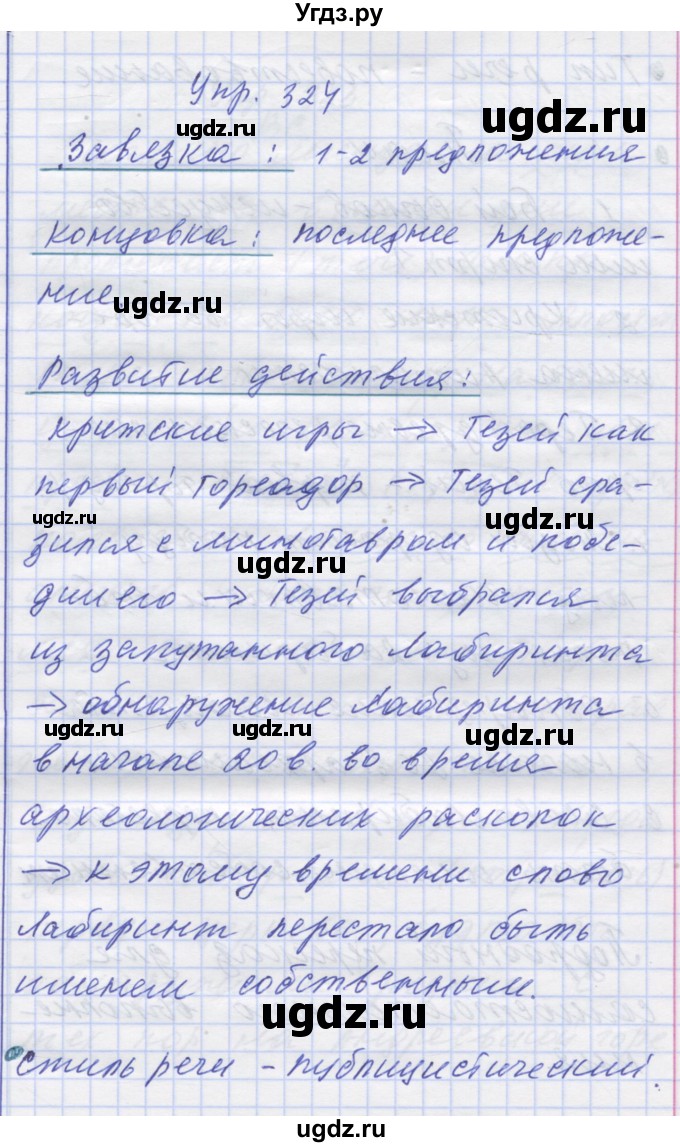 Угдз.ру
Упр. 324
ugdz.ru
ugdz.ru
Завязка : 1-2 предложения
Концовка: последнее предложе-
ние.
ugdz.ru
Развитие действия:
Критские игры → Тезей как
первый тореадор → Тезей сра-
ugdz.ru
ugdz.ru
зился с минотавром и побе-
ugdz.ru
дил его → Тезей выбрался
из запутанного Лабиринта
→ обнаружение Лабиринта
ugdz.ru
ugdz.ru
ugdz.ru
в начале 20 в. во время
археологических раскопок
→ к этому времени слово
Лабиринт перестало быть
именем собственным.
ugdz.ru
стиль речи - публицистический.
ugdz.ru